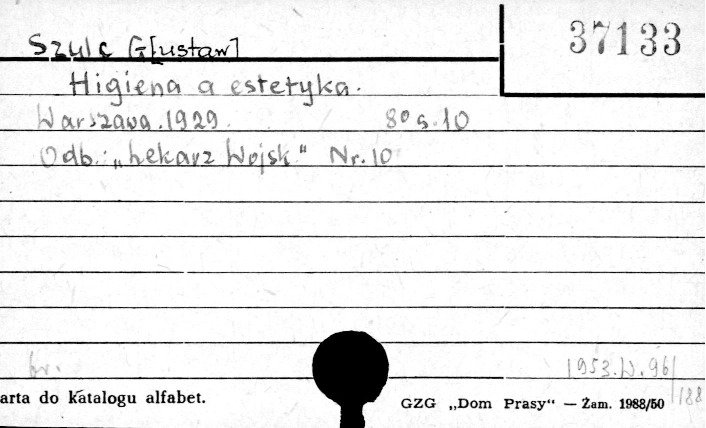 37133
Szulc G[ustaw]
Higiena a estetyka.
Warszawa. 1929. 8° s. 10
Odb.: „Lekarz Wojsk." Nr. 10
br. 1953.W.96/188
arta do katalogu alfabet.
GZG „Dom Prasy“ — Żam. 1988/50